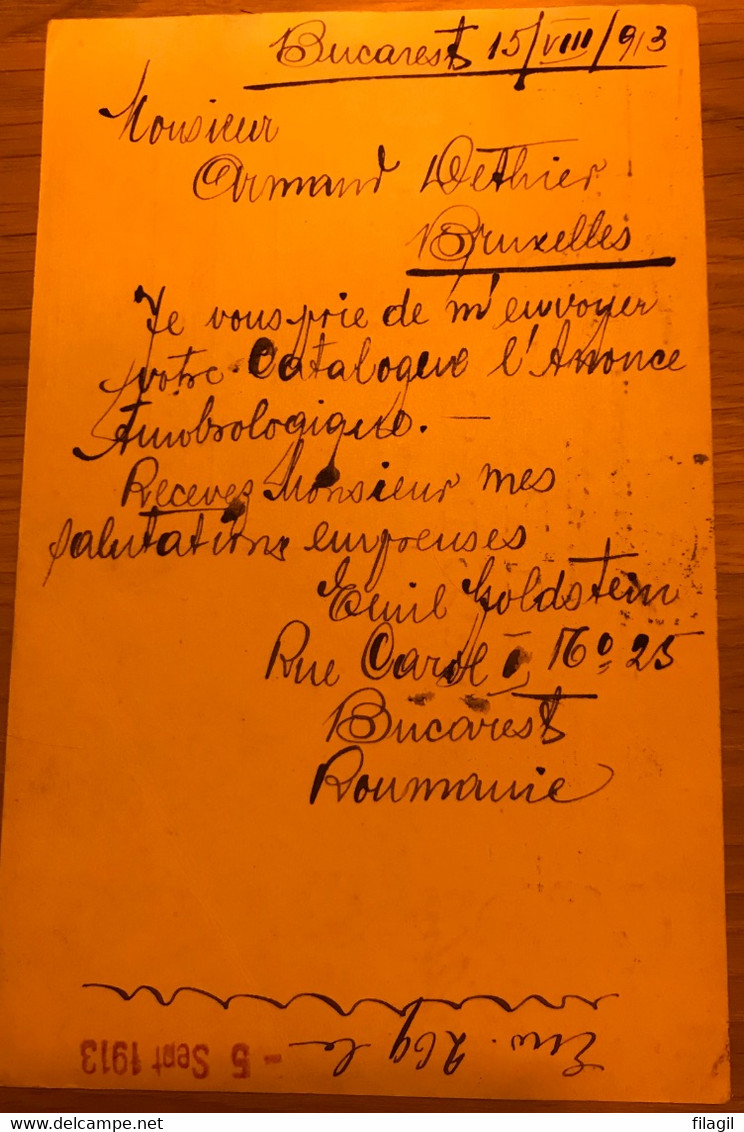 Bucarest 15/VIII/913
Monsieur
Armand Dethier
Bruxelles
Je vous prie de m'envoyer
votre Catalogue l'Anonce
Timbrologique. —
Receves Monsieur mes
salutations empreuses
Emil Goldstein
Rue Carol I No 25
Bucarest
Roumanie
Env. 269 le
- 5 Sept 1913
filagil